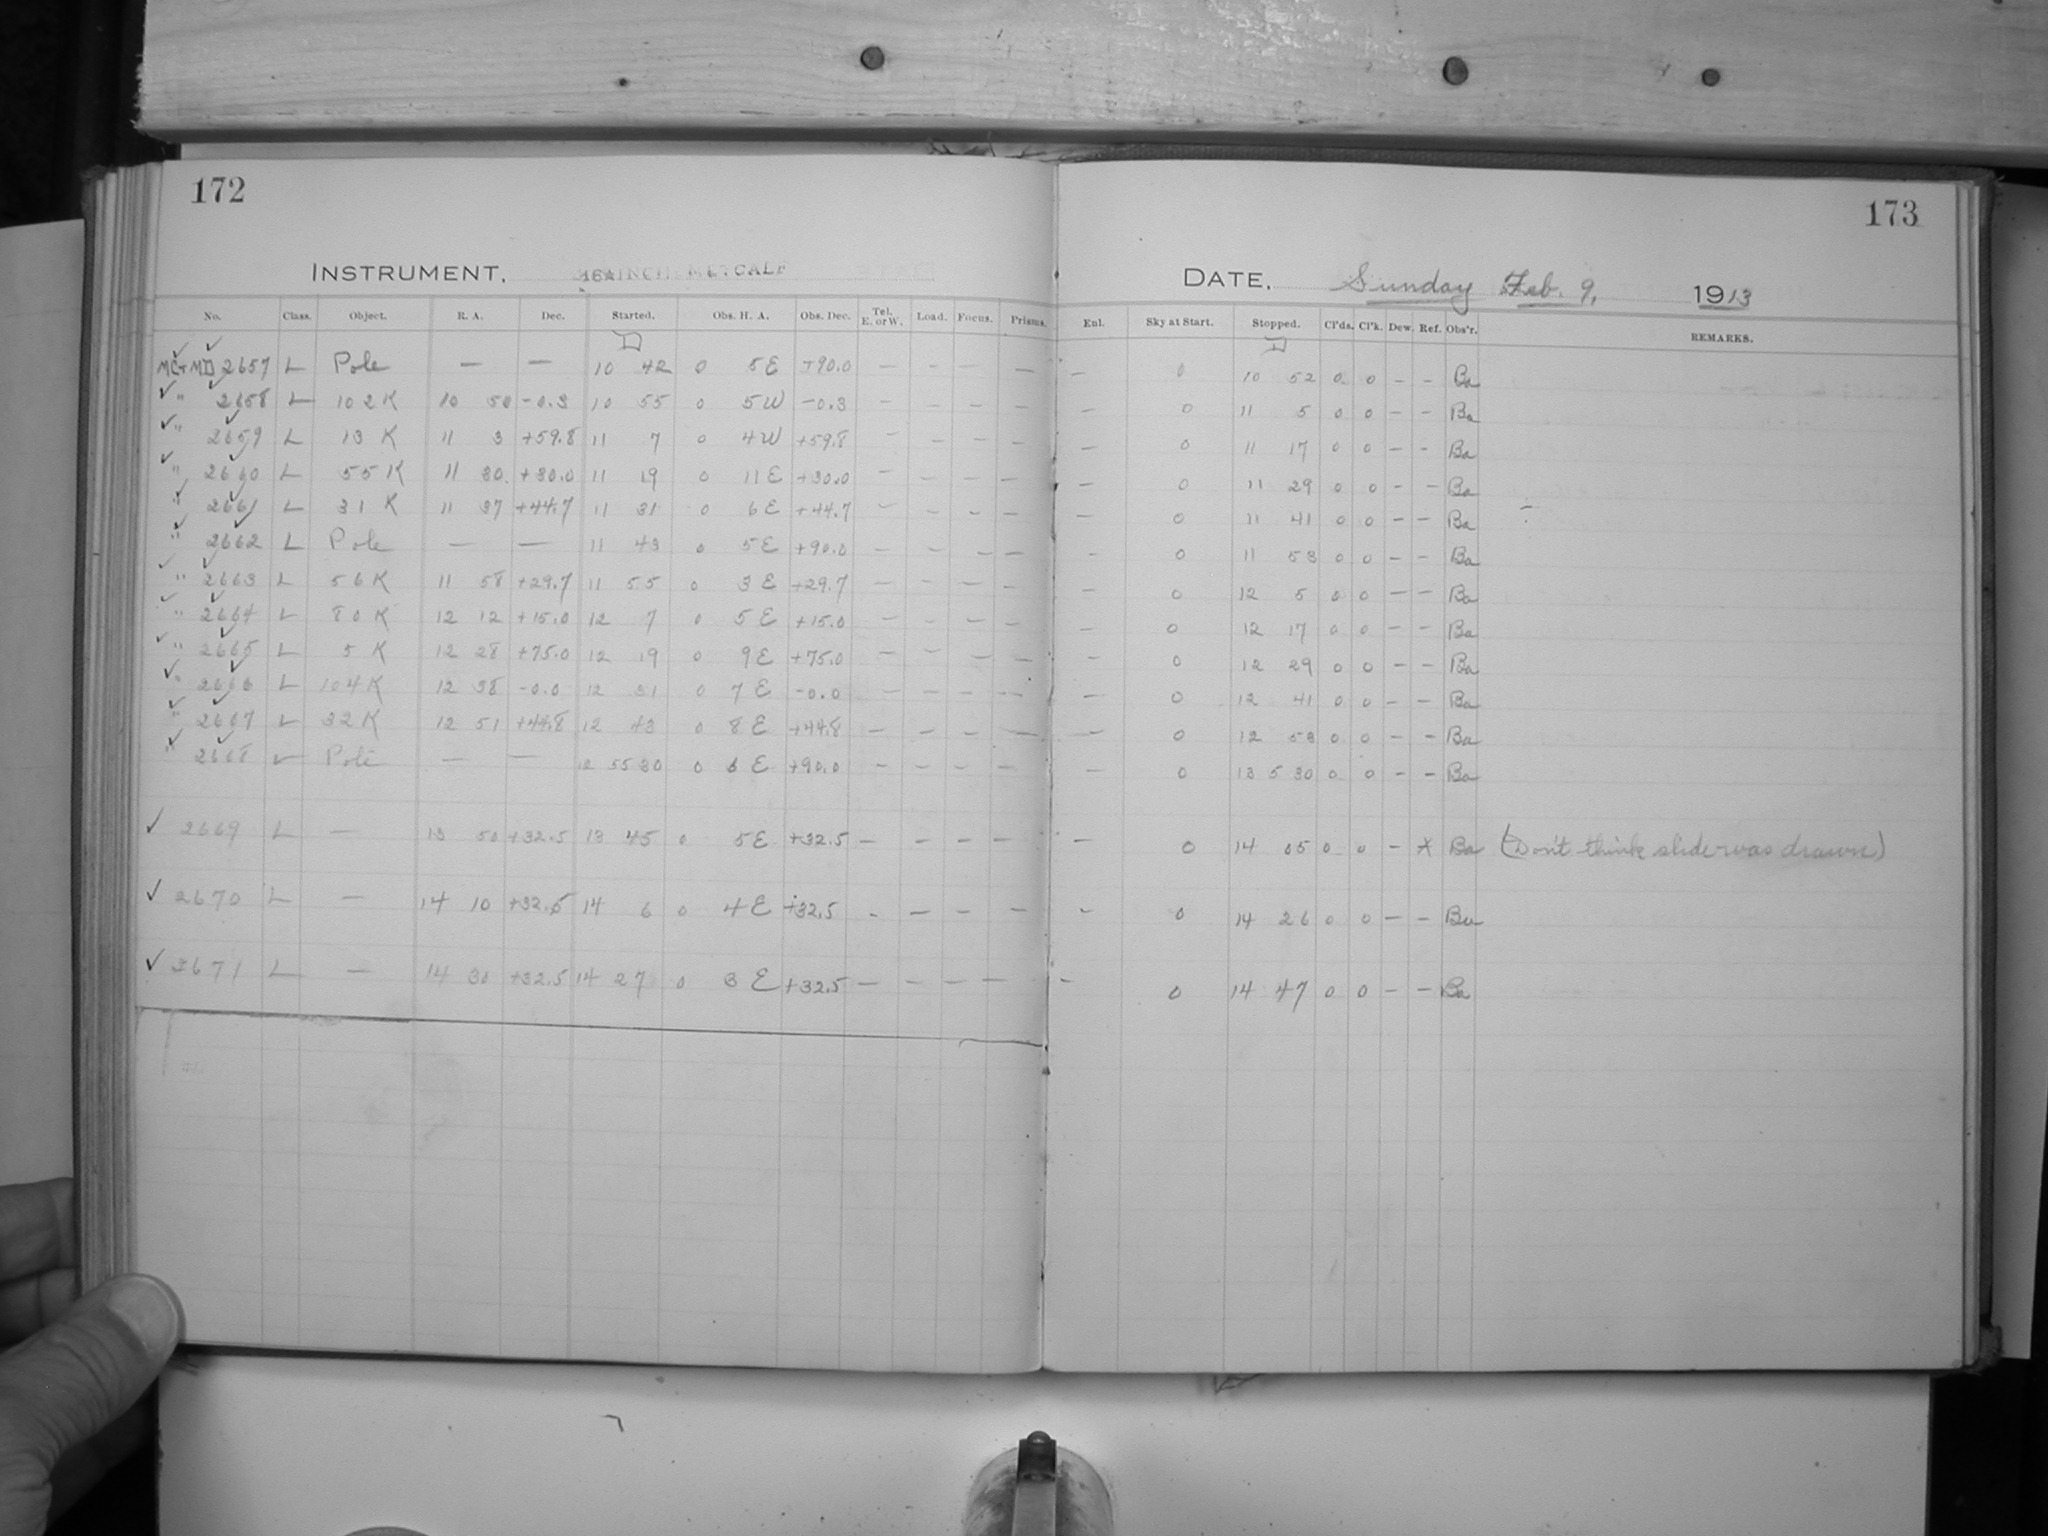 172
173
INSTRUMENT, 16 INCH METCALF
DATE, Sunday Feb. 9, 1913
No. Class. Object. R. A. Dec. Started. Obs. H. A. Obs. Dec. Tel. E. or W. Load. Focus. Prisms. Enl. Sky at Start. Stopped. Cl'ds. Cl'k. Dew. Ref. Obs'r. REMARKS.
MC+MD 2657 L Pole — — 10 42 0 5E +90.0 — — — — — 0 10 52 0 0 – – Ba
" 2658 L 102K 10 50 -0.3 10 55 0 5W -0.3 – – – – – 0 11 5 0 0 – – Ba
" 2659 L 13 K 11 3 +59.8 11 7 0 4W +59.8 – – – – – 0 11 17 0 0 – – Ba
" 2660 L 55 K 11 30 +30.0 11 19 0 11E +30.0 – – – – – 0 11 29 0 0 – – Ba
" 2661 L 31 K 11 37 +44.7 11 31 0 6E +44.7 – – – – – 0 11 41 0 0 – – Ba
" 2662 L Pole — — 11 43 0 5E +90.0 – – – – – 0 11 53 0 0 – – Ba
" 2663 L 56K 11 58 +29.7 11 55 0 3E +29.7 – – – – – 0 12 5 0 0 – – Ba
" 2664 L 80K 12 12 +15.0 12 7 0 5E +15.0 – – – – – 0 12 17 0 0 – – Ba
" 2665 L 5 K 12 28 +75.0 12 19 0 9E +75.0 – – – – – 0 12 29 0 0 – – Ba
" 2666 L 104K 12 38 -0.0 12 31 0 7E -0.0 – – – – – 0 12 41 0 0 – – Ba
" 2667 L 32K 12 51 +44.8 12 43 0 8E +44.8 – – – – – 0 12 53 0 0 – – Ba
" 2668 L Pole — — 12 55 30 0 6E +90.0 – – – – – 0 13 5 30 0 0 – – Ba
2669 L — 13 50 +32.5 13 45 0 5E +32.5 – – – – – 0 14 05 0 0 – * Ba (Don't think slider was drawn)
2670 L — 14 10 +32.5 14 6 0 4E +32.5 – – – – – 0 14 26 0 0 – – Ba
2671 L — 14 30 +32.5 14 27 0 3E +32.5 – – – – – 0 14 47 0 0 – – Ba